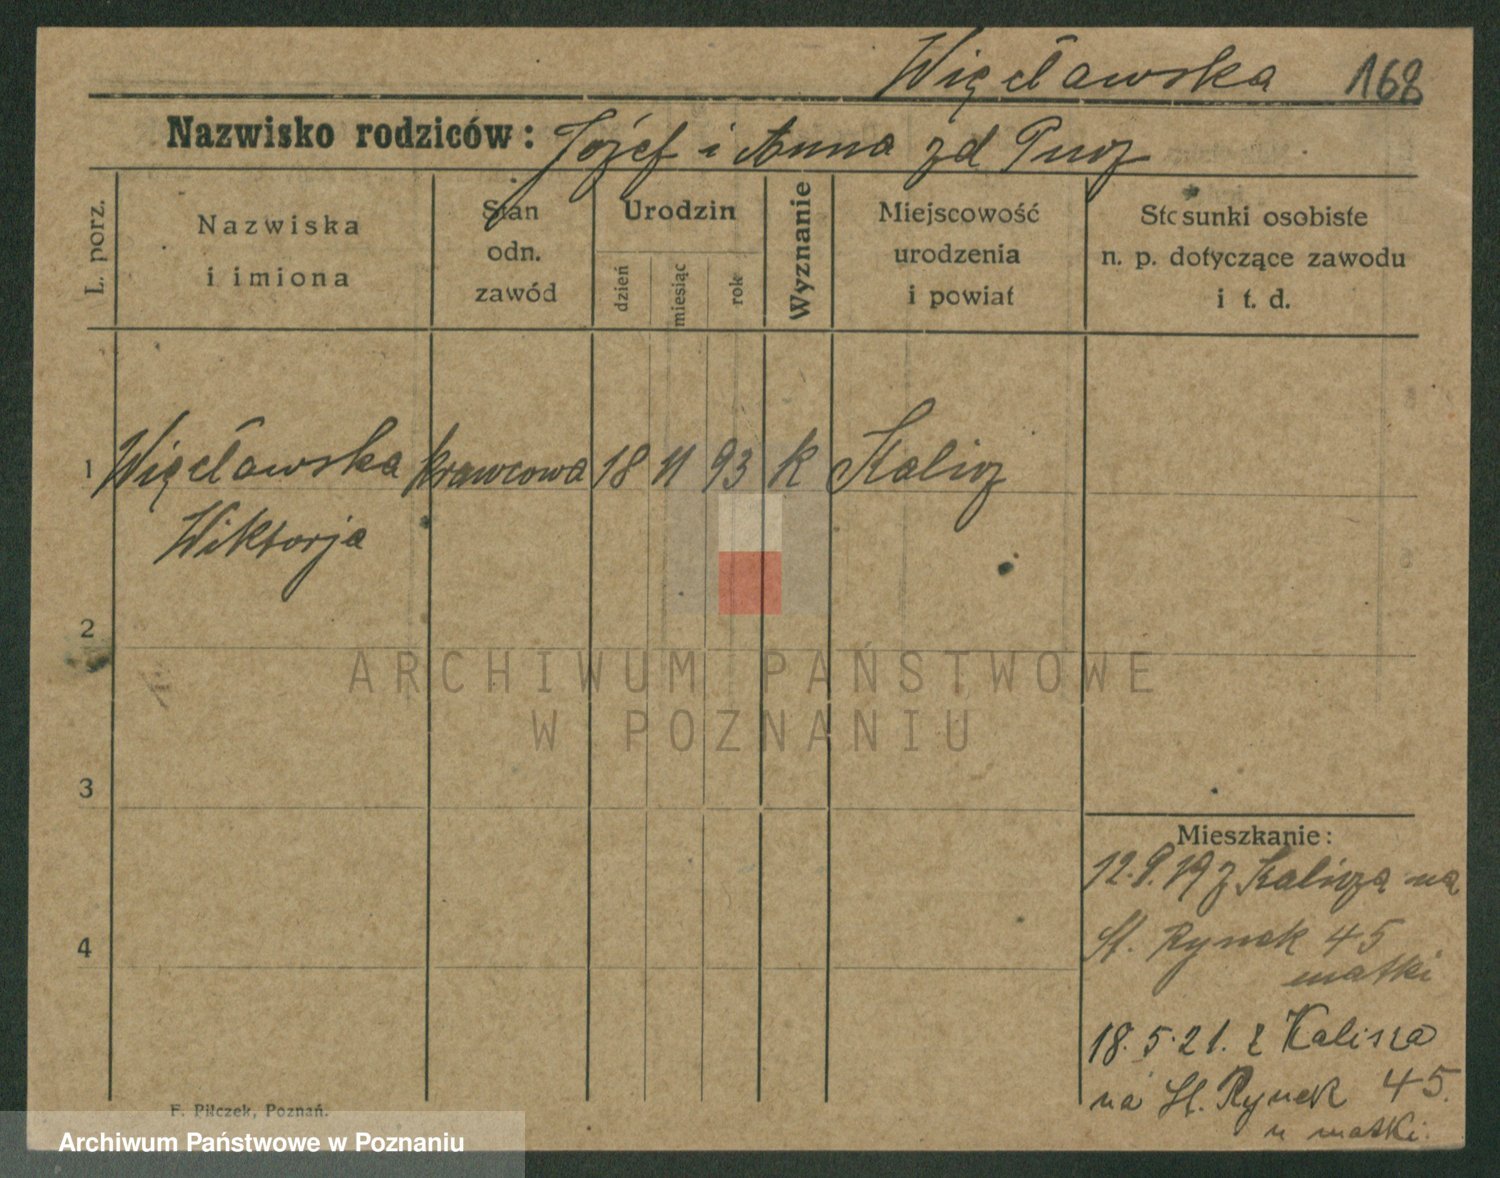 Więcławska 168
Nazwisko rodziców: Józef i Anna zd
L. porz.
Nazwiska
i imiona
Stan
odn.
zawód
Urodzin
dzień
miesiąc
rok
Wyznanie
Miejscowość
urodzenia
i powiat
Stosunki osobiste
n. p. dotyczące zawodu
i t. d.
1 Więcławska krawcowa 18 11 93 k Kalisz
Wiktorja
2
3
4
Mieszkanie:
12.9.19 z Kalisza na
St. Rynek 45
matki
18.5.21. z Kalisza
na St. Rynek 45.
u matki.
F. Pilczek, Poznań.
ARCHIWUM PAŃSTWOWE
W POZNANIU
Archiwum Państwowe w Poznaniu